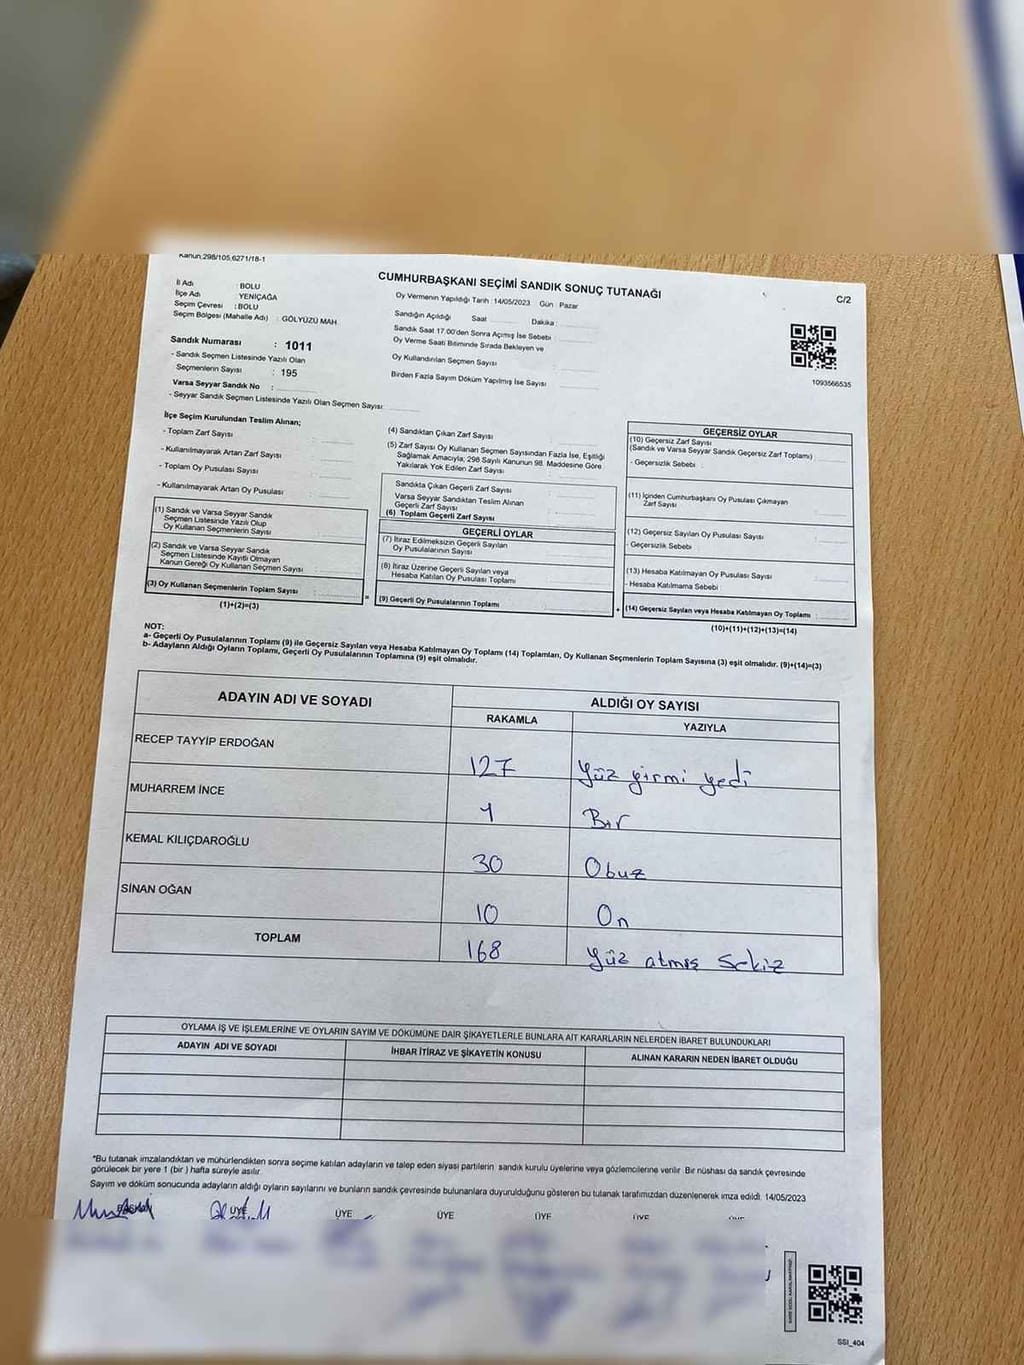 Kanun;298/105,6271/18-1
CUMHURBAŞKANI SEÇİMİ SANDIK SONUÇ TUTANAĞI
C/2
İl Adı : BOLU
İlçe Adı : YENİÇAĞA
Seçim Çevresi : BOLU
Seçim Bölgesi (Mahalle Adı) : GÖLYÜZÜ MAH
Sandık Numarası : 1011
- Sandık Seçmen Listesinde Yazılı Olan
Seçmenlerin Sayısı : 195
Varsa Seyyar Sandık No :
- Seyyar Sandık Seçmen Listesinde Yazılı Olan Seçmen Sayısı
Oy Vermenin Yapıldığı Tarih : 14/05/2023 Gün : Pazar
Sandığın Açıldığı Saat Dakika :
Sandık Saat 17.00'den Sonra Açmış İse Sebebi
Oy Verme Saati Bitiminde Sırada Bekleyen ve
Oy Kullandırılan Seçmen Sayısı
Birden Fazla Sayım Döküm Yapılmış İse Sayısı
1093566535
İlçe Seçim Kurulundan Teslim Alınan;
- Toplam Zarf Sayısı
- Kullanılmayarak Artan Zarf Sayısı
- Toplam Oy Pusulası Sayısı
- Kullanılmayarak Artan Oy Pusulası
(1) Sandık ve Varsa Seyyar Sandık
Seçmen Listesinde Yazılı Olup
Oy Kullanan Seçmenlerin Sayısı
(2) Sandık ve Varsa Seyyar Sandık
Seçmen Listesinde Kayıtlı Olmayan
Kanun Gereği Oy Kullanan Seçmen Sayısı
(3) Oy Kullanan Seçmenlerin Toplam Sayısı
(1)+(2)=(3)
(4) Sandıktan Çıkan Zarf Sayısı
(5) Zarf Sayısı Oy Kullanan Seçmen Sayısından Fazla İse, Eşitliği
Sağlamak Amacıyla; 298 Sayılı Kanunun 98. Maddesine Göre
Yakılarak Yok Edilen Zarf Sayısı
Sandıkta Çıkan Geçerli Zarf Sayısı
Varsa Seyyar Sandıktan Teslim Alınan
Geçerli Zarf Sayısı
(6) Toplam Geçerli Zarf Sayısı
GEÇERLİ OYLAR
(7) İtiraz Edilmeksizin Geçerli Sayılan
Oy Pusulalarının Sayısı
(8) İtiraz Üzerine Geçerli Sayılan veya
Hesaba Katılan Oy Pusulası Toplamı
(9) Geçerli Oy Pusulalarının Toplamı
GEÇERSİZ OYLAR
(10) Geçersiz Zarf Sayısı
(Sandık ve Varsa Seyyar Sandık Geçersiz Zarf Toplamı)
- Geçersizlik Sebebi :
(11) İçinden Cumhurbaşkanı Oy Pusulası Çıkmayan
Zarf Sayısı
(12) Geçersiz Sayılan Oy Pusulası Sayısı
- Geçersizlik Sebebi
(13) Hesaba Katılmayan Oy Pusulası Sayısı
- Hesaba Katılmama Sebebi
(14) Geçersiz Sayılan veya Hesaba Katılmayan Oy Toplamı
(10)+(11)+(12)+(13)=(14)
NOT:
a- Geçerli Oy Pusulalarının Toplamı (9) ile Geçersiz Sayılan veya Hesaba Katılmayan Oy Toplamı (14) Toplamları, Oy Kullanan Seçmenlerin Toplam Sayısına (3) eşit olmalıdır. (9)+(14)=(3)
b- Adayların Aldığı Oyların Toplamı, Geçerli Oy Pusulalarının Toplamına (9) eşit olmalıdır.
ADAYIN ADI VE SOYADI
ALDIĞI OY SAYISI
RAKAMLA YAZIYLA
RECEP TAYYİP ERDOĞAN 127 yüz yirmi yedi
MUHARREM İNCE 1 Bir
KEMAL KILIÇDAROĞLU 30 Otuz
SİNAN OĞAN 10 On
TOPLAM 168 yüz atmış Sekiz
OYLAMA İŞ VE İŞLEMLERİNE VE OYLARIN SAYIM VE DÖKÜMÜNE DAİR ŞİKAYETLERLE BUNLARA AİT KARARLARIN NELERDEN İBARET BULUNDUKLARI
ADAYIN ADI VE SOYADI İHBAR İTİRAZ VE ŞİKAYETİN KONUSU ALINAN KARARIN NEDEN İBARET OLDUĞU
*Bu tutanak imzalandıktan ve mühürlendikten sonra seçime katılan adayların ve talep eden siyasi partilerin sandık kurulu üyelerine veya gözlemcilerine verilir. Bir nüshası da sandık çevresinde
görülecek bir yere 1 (bir) hafta süreyle asılır.
Sayım ve döküm sonucunda adayların aldığı oyların sayılarını ve bunların sandık çevresinde bulunanlara duyurulduğunu gösteren bu tutanak tarafımızdan düzenlenerek imza edildi. 14/05/2023
BAŞKAN ÜYE ÜYE ÜYE ÜYE ÜYE ÜYE
SSI_404